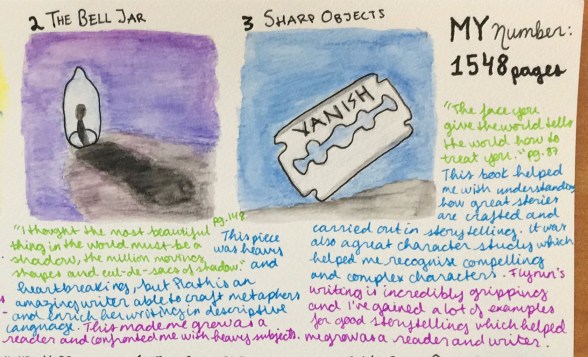 2 THE BELL JAR
3 SHARP OBJECTS
VANISH
MY number:
1548 pages
"I thought the most beautiful
thing in the world must be a
shadow, the million moving
shapes and cul-de-sacs of shadow."
pg.148
This piece
was heavy
and
heartbreaking, but Plath is an
amazing writer able to craft metaphors
and enrich her writing in descriptive
language. This made me grow as a
reader and confronted me with heavy subjects.
"The face you
give the world tells
the world how to
treat you." pg.87
This book helped
me with understanding
how great stories
are crafted and
carried out in storytelling. It was
also a great character study which
helped me recognise compelling
and complex characters. Flynn's
writing is incredibly gripping
and I've gained a lot of examples
for good storytelling which helped
me grow as a reader and writer.